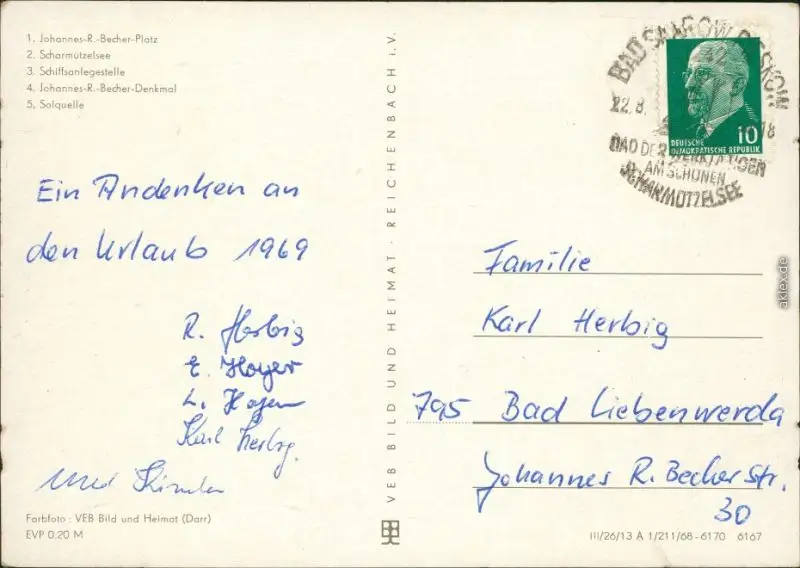 1. Johannes-R.-Becher-Platz
2. Scharmützelsee
3. Schiffsanlegestelle
4. Johannes-R.-Becher-Denkmal
5. Solquelle
Ein Andenken an
den Urlaub 1969
R. Herbig
E. Hoyer
L. Hoyer
Karl Herbig.
und
Farbfoto: VEB Bild und Heimat (Darr)
EVP 0.20 M
VEB BILD UND HEIMAT · REICHENBACH i.V.
BAD SAAROW
22.8.
18
BAD DER WERKTÄTIGEN
AM SCHÖNEN
SCHARMÜTZELSEE
10
DEUTSCHE
DEMOKRATISCHE REPUBLIK
Familie
Karl Herbig
795 Bad Liebenwerda
Johannes R. Becher Str.
30
III/26/13 A 1/211/68-6170 6167
aklex.de